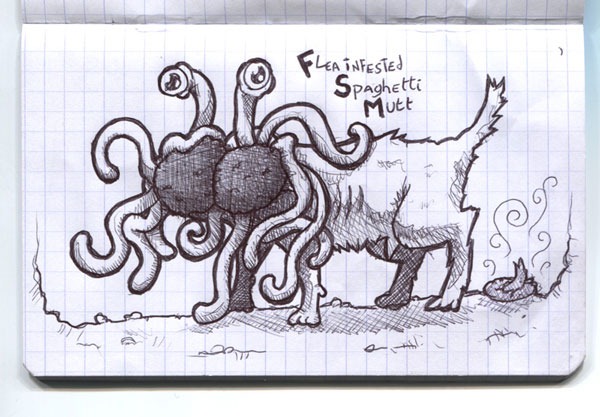 Flea infested
Spaghetti
Mutt